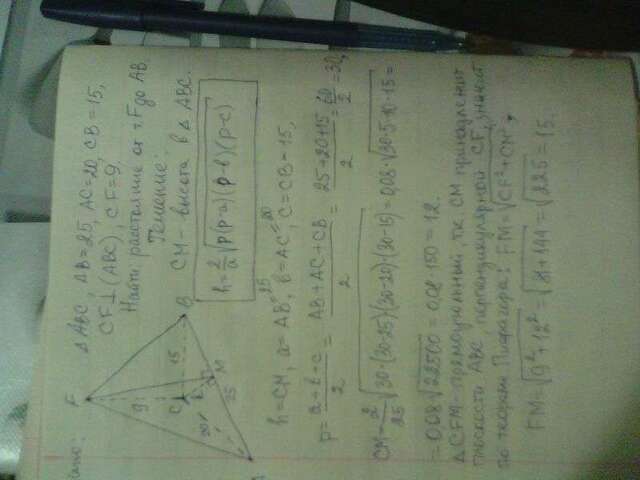 Дано:
Δ ABC, AB=25, AC=20, CB=15,
CF⊥(ABC), CF=9.
Найти расстояние от т. F до AB
Решение:
CM - высота в Δ ABC.
h = 2/a √(p(p-a)(p-b)(p-c))
h=CM, a=AB=25, b=AC=20, c=CB=15,
p = (a+b+c)/2 = (AB+AC+CB)/2 = (25+20+15)/2 = 60/2 = 30,
CM = 2/25 √(30·(30-25)·(30-20)·(30-15)) = 0,08·√(30·5·10·15) =
= 0,08 √22500 = 0,08·150 = 12.
Δ CFM - прямоугольный, т.к. CM принадлежит
плоскости ABC, перпендикулярной CF, значит
по теореме Пифагора: FM = √(CF²+CM²),
FM = √(9²+12²) = √(81+144) = √225 = 15.
F
9
C
15
B
20
h
M
25